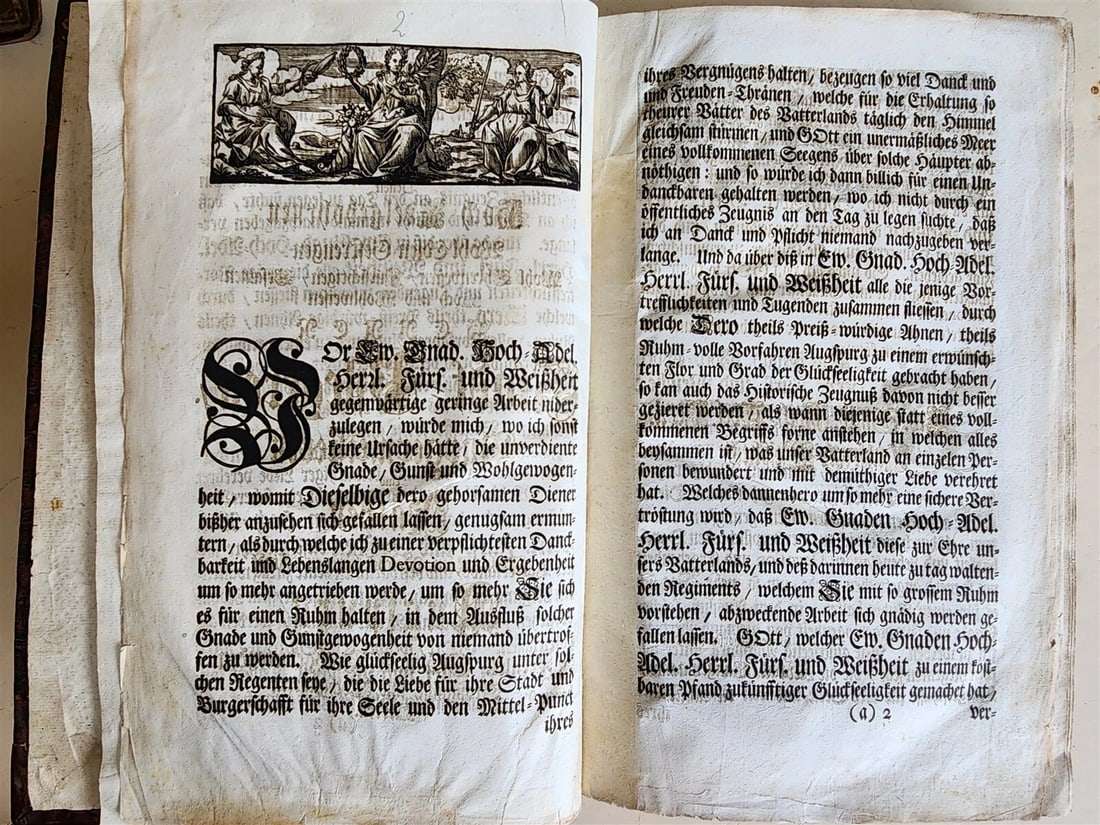 2
VOr Ew. Gnad. Hoch-Adel.
Herrl. Fürs. und Weißheit
gegenwärtige geringe Arbeit nider-
zulegen / würde mich / wo ich sonst
keine Ursache hätte / die unverdiente
Gnade / Gunst und Wohlgewogen-
heit / womit Dieselbige dero gehorsamen Diener
bißher anzusehen sich gefallen lassen / genugsam ermun-
tern / als durch welche ich zu einer verpflichtesten Danck-
barkeit und Lebenslangen Devotion und Ergebenheit
um so mehr angetrieben werde / um so mehr Sie sich
es für einen Ruhm halten / in dem Ausfluß solcher
Gnade und Gunstgewogenheit von niemand übertrof-
fen zu werden. Wie glückseelig Augspurg unter sol-
chen Regenten seye / die die Liebe für ihre Stadt und
Burgerschafft für ihre Seele und den Mittel-Punct
ihres
ihres Vergnügens halten / bezeugen so viel Danck und
und Freuden-Thränen / welche für die Erhaltung so
theurer Vätter des Vatterlands täglich den Himmel
gleichsam stürmen / und GOtt ein unermäßliches Meer
eines vollkommenen Seegens über solche Häupter ab-
nöthigen : und so würde ich dann billich für einen Un-
danckbaren gehalten werden / wo ich nicht durch ein
öffentliches Zeugnis an den Tag zu legen suchte / daß
ich an Danck und Pflicht niemand nachzugeben ver-
lange. Und da über diß in Ew. Gnad. Hoch-Adel.
Herrl. Fürs. und Weißheit alle die jenige Vor-
trefflichkeiten und Tugenden zusammen fliessen / durch
welche Dero theils Preiß-würdige Ahnen / theils
Ruhm-volle Vorfahren Augspurg zu einem erwünsch-
ten Flor und Grad der Glückseeligkeit gebracht haben /
so kan auch das Historische Zeugnuß davon nicht besser
gezieret werden / als wann diejenige statt eines voll-
kommenen Begriffs forne anstehen / in welchen alles
beysammen ist / was unser Vatterland an einzelen Per-
sonen bewundert und mit demüthiger Liebe verehret
hat. Welches dannenhero um so mehr eine sichere Ver-
tröstung wird / daß Ew. Gnaden Hoch-Adel.
Herrl. Fürs. und Weißheit diese zur Ehre un-
sers Vatterlands / und deß darinnen heute zu tag walten-
den Regiments / welchem Sie mit so grossem Ruhm
vorstehen / abzweckende Arbeit sich gnädig werden ge-
fallen lassen. GOtt / welcher Ew. Gnaden Hoch-
Adel. Herrl. Fürs. und Weißheit zu einem kost-
baren Pfand zukünfftiger Glückseeligkeit gemachet hat /
(a) 2 ver-